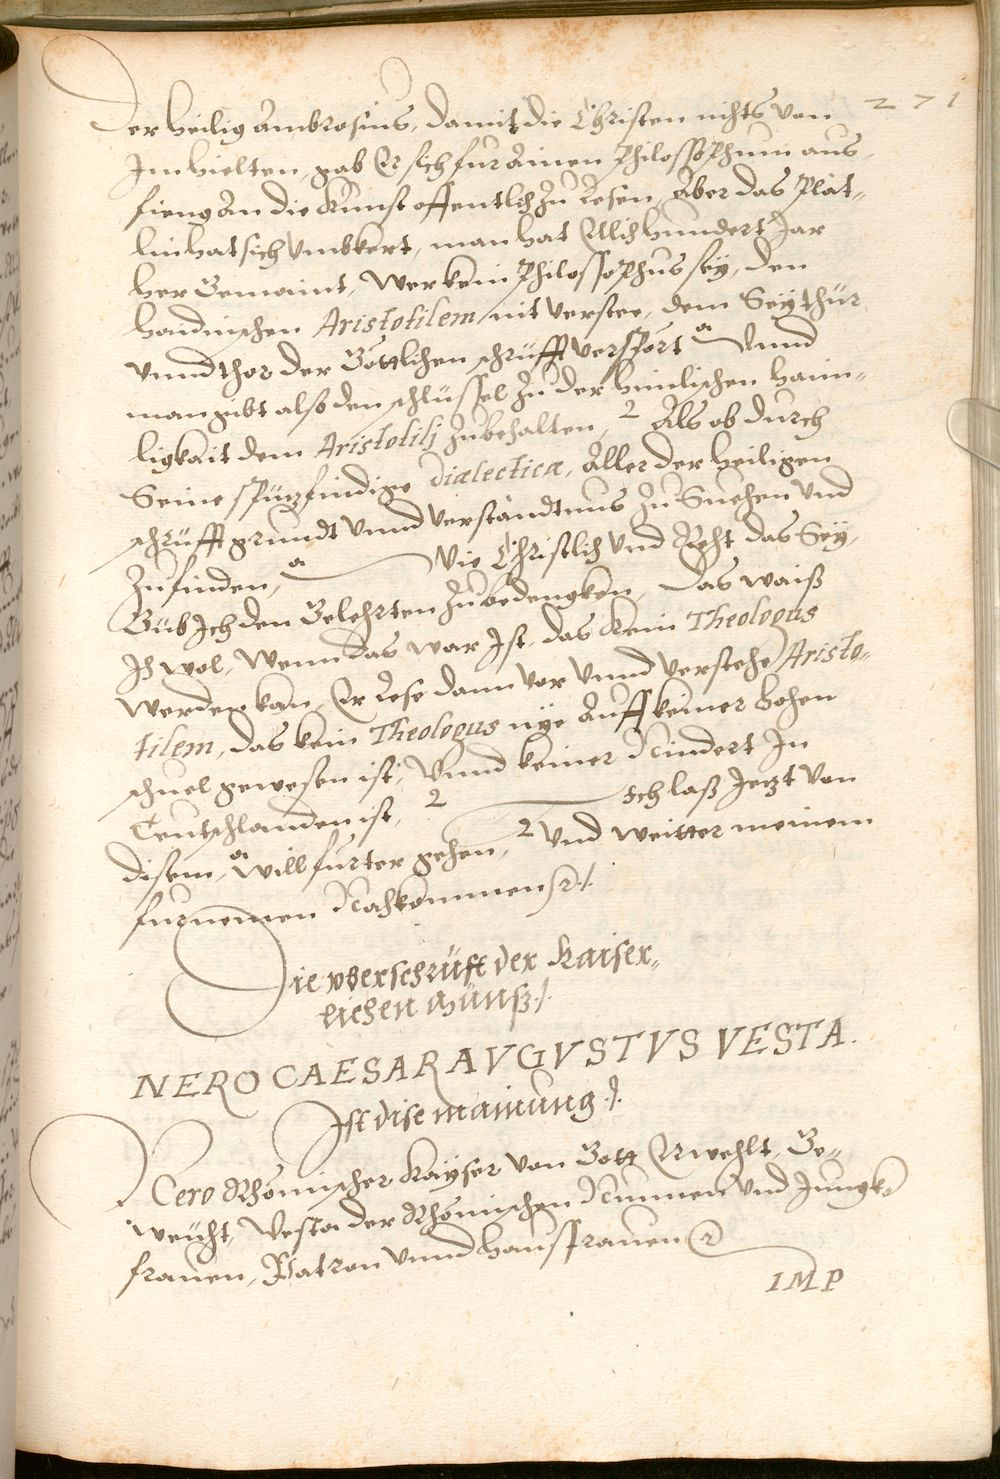 271
Der heilig Ambrosius, damit die Christen nichts von
Im hielten, gab Er sich fur Ainen Philossophum aus,
fieng An die Kunst offentlich zu Lesen, Aber das Plät-
lin hat sich vmbkert, man hat Etlich hundert Jar
her Gemaint, Wer kein Philossophus sey, den
haidnischen Aristotilem nit verstee, dem Sey thür
vnnd thor der Göttlichen schrüfft versport Vnnd
man gibt also den schlüssel zu der himlischen haim-
ligkait dem Aristotilj zubehalten, Als ob durch
Seine spüzfindige Dialectica, Aller der heiligen
schrüfft grundt vnnd verstandtnus zu Suchen vnd
zufinden, Wie Christlich vnd Recht das Sey,
Güb Ich den Gelehrten zubedengken, Das waiß
Ich wol, Wenn das war Ist, das kein Theologus
werden kan, Er Lese dann vor vnnd verstehe Aristo-
tilem, das kein Theologus nÿe Auff keiner hohen
schuel gewesen ist, Vnnd keiner Nindert In
Teutschlanden ist, Ich laß Jetzt von
disem, will furter gehen, Vnd weitter meinem
furnemen Nachkommen
Die vberschrüft der Kaiser-
lichen Münß
NERO CAESAR AVGVSTVS VESTA.
Ist dise mainung
Nero Rhömischer Kayser von Gott Erwehlt, Ge-
weicht, Vesta der Rhömischen Nunnen vnd Jungk-
frauen, Patron vnnd haussfrauen
IMP